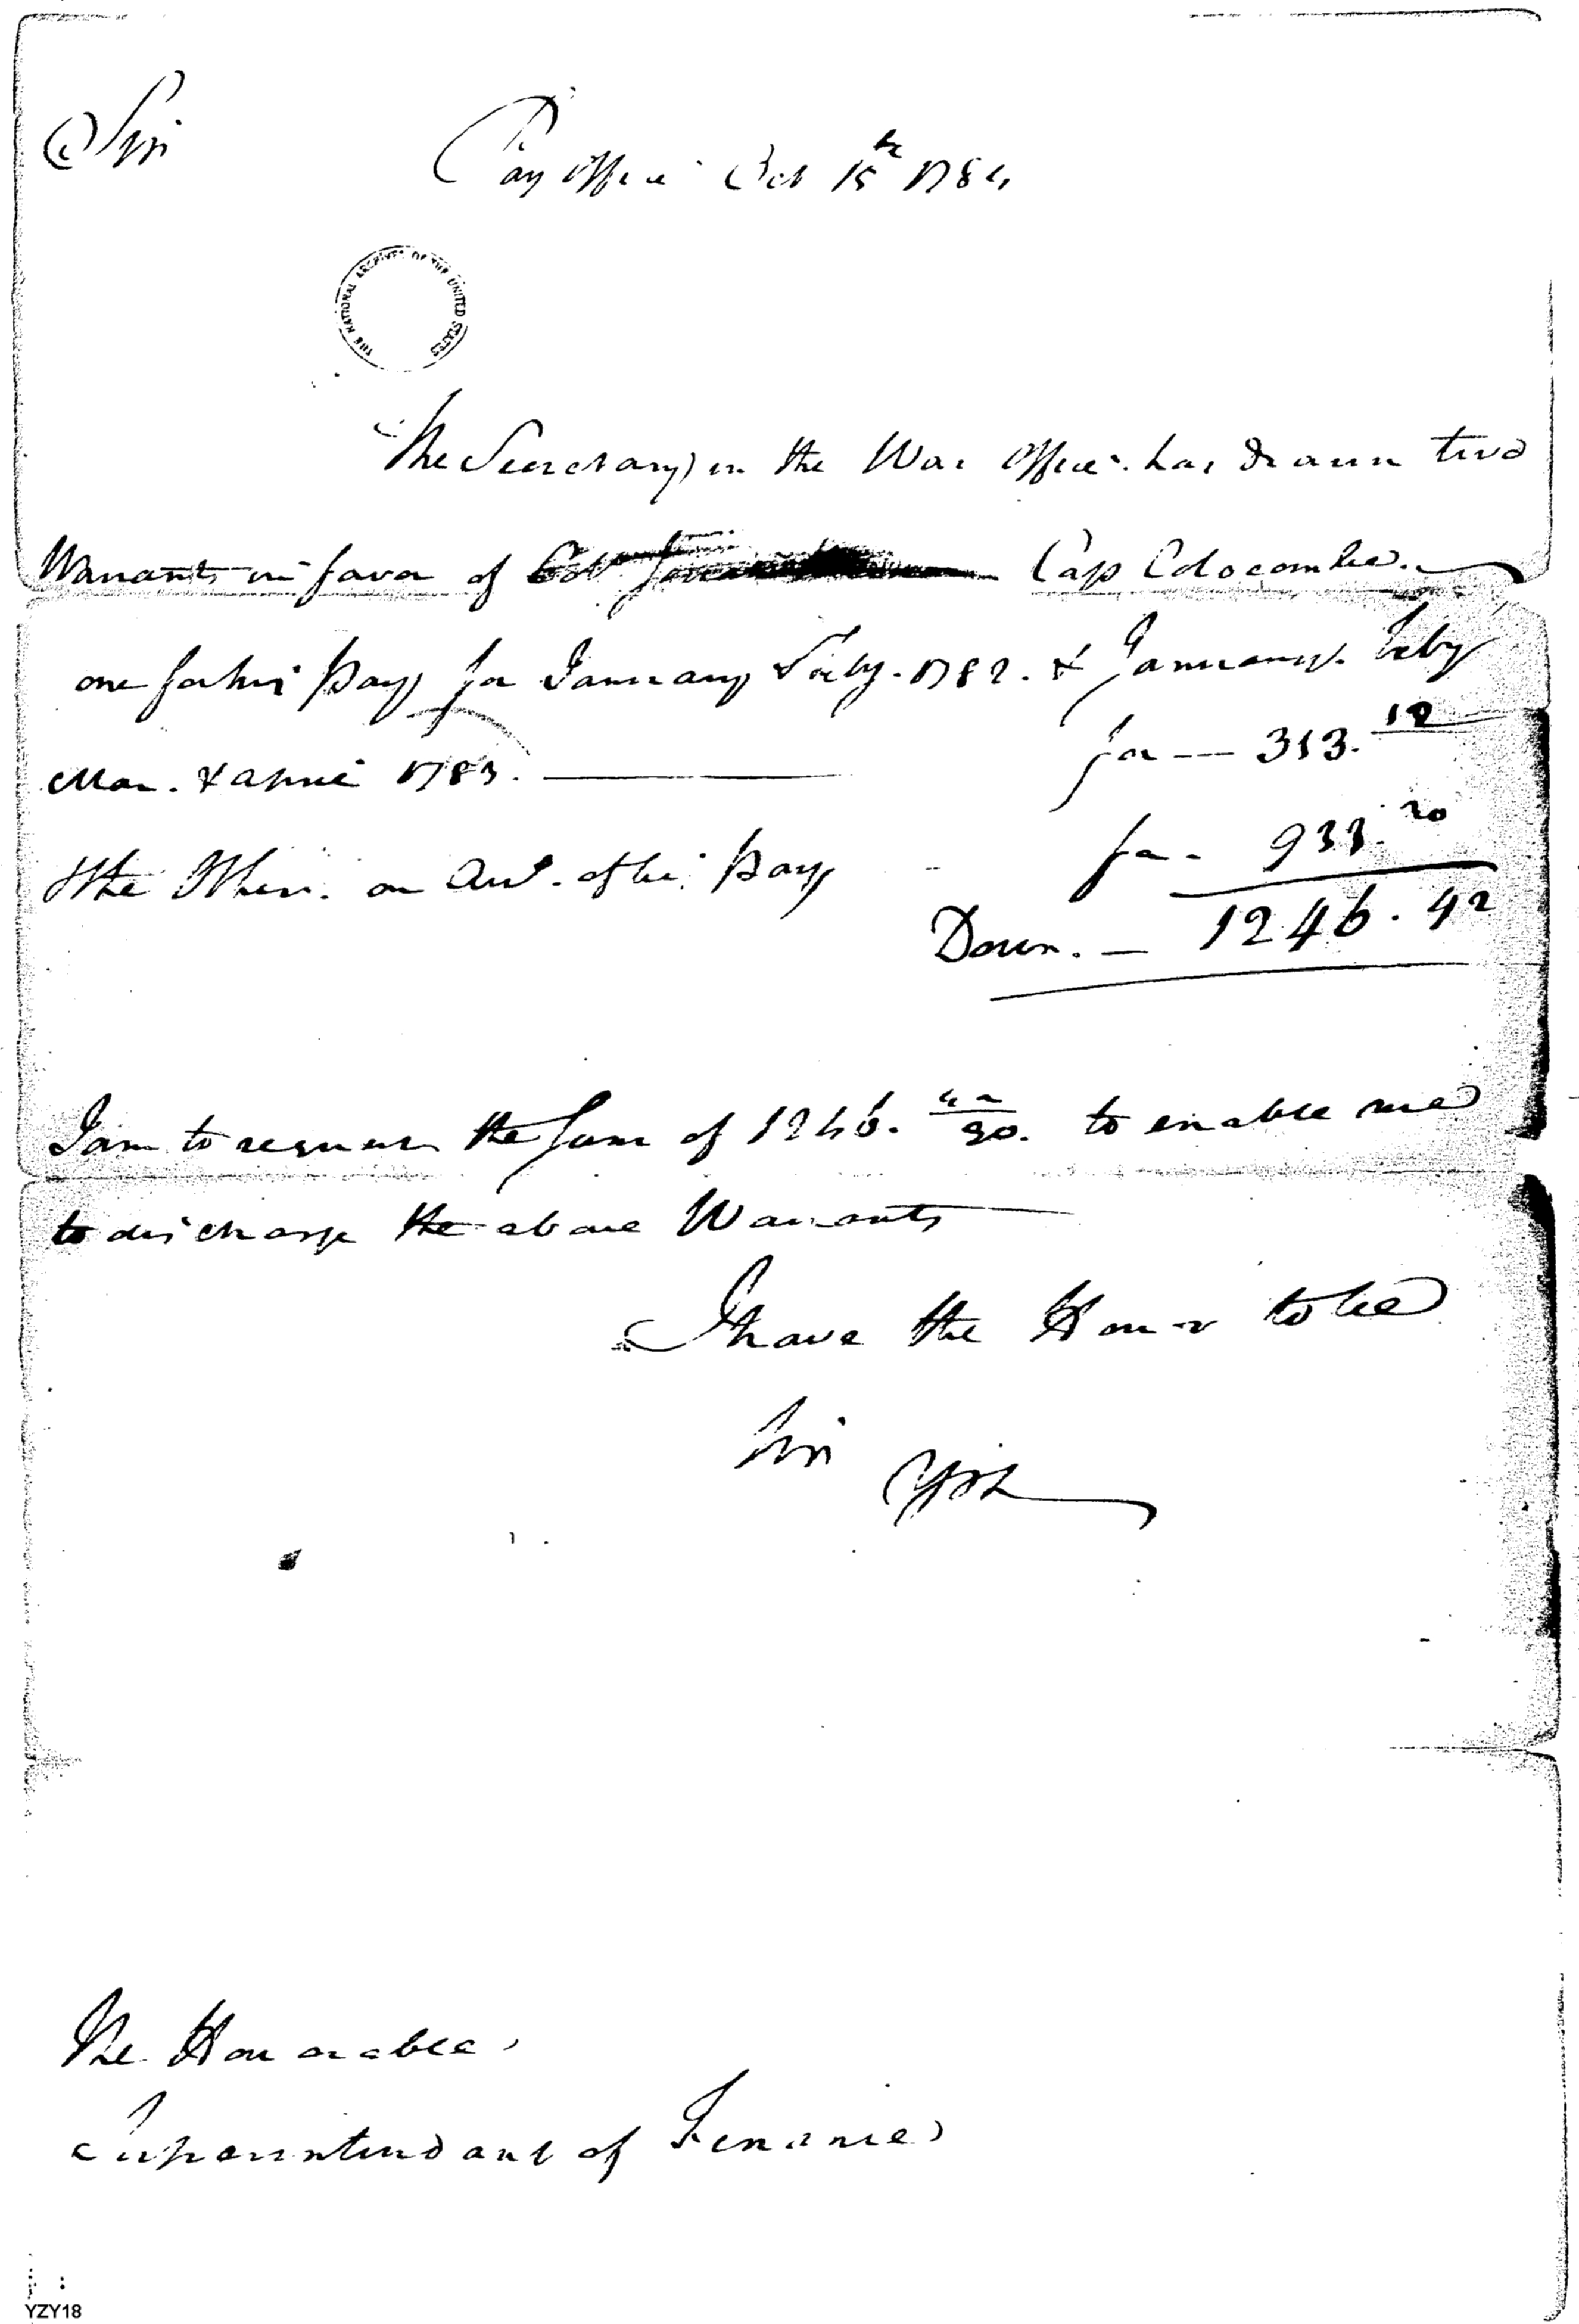 Sir
Pay Office Oct 15th 1784
THE NATIONAL ARCHIVES OF THE UNITED STATES
The Secretary in the War Office has drawn two
Warrants in favor of Cap Colocombe.
one for his Pay for January Feby. 1782. & January. Feby
Mar. & April 1783. for — 313.
& the Other on of his Pay for - 933. 20
1246. 42
I am to request the Sum of 1246. 42/90. to enable me
to discharge the above Warrants
I have the Honor to be
Sir
The Honorable
Superintendant of Finance
YZY18